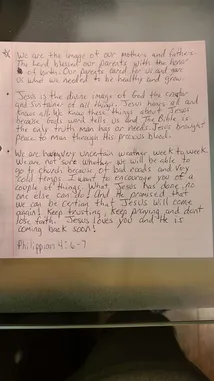 We are the image of our mothers and fathers.
The Lord blessed our parents with the honor
of births. Our parents cared for us and gave
us what we needed to be healthy and grow.
Jesus is the divine image of God the creator
and sustainer of all things. Jesus hears all and
knows all. We know these things about Jesus
because God's word tells us and The Bible is
the only truth man has or needs. Jesus brought
peace to man through His precious blood.
We are having very uncertain weather week to week.
We are not sure whether we will be able to
go to church because of bad roads and very
cold temps. I want to encourage you of a
couple of things. What Jesus has done, no
one else can do! And He promised that
we can be certian that Jesus will come
again! Keep trusting, Keep praying and dont
lose faith. Jesus loves you and He is
coming back soon!
Philippian 4:6-7